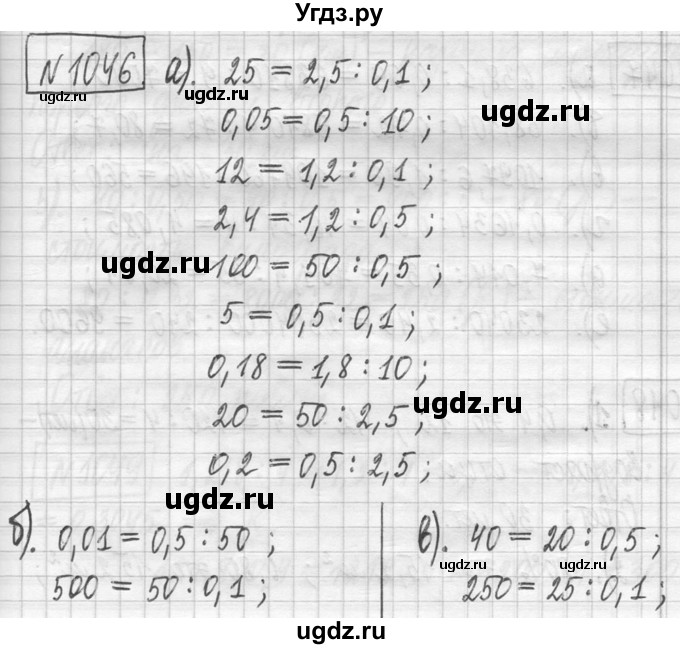 Угдз.ру
N 1046 а). 25 = 2,5 : 0,1 ;
0,05 = 0,5 : 10 ;
12 = 1,2 : 0,1 ;
2,4 = 1,2 : 0,5 ;
100 = 50 : 0,5 ;
5 = 0,5 : 0,1 ;
0,18 = 1,8 : 10 ;
20 = 50 : 2,5 ;
0,2 = 0,5 : 2,5 ;
б). 0,01 = 0,5 : 50 ;
500 = 50 : 0,1 ;
в). 40 = 20 : 0,5 ;
250 = 25 : 0,1 ;
ugdz.ru
ugdz.ru
ugdz.ru
ugdz.ru
ugdz.ru
ugdz.ru
ugdz.ru
ugdz.ru
ugdz.ru
ugdz.ru